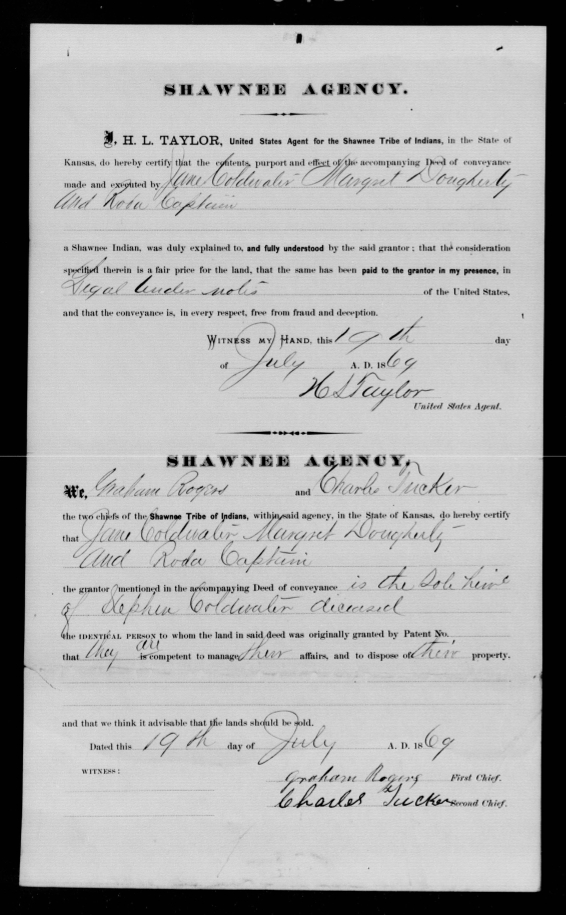 SHAWNEE AGENCY.
I, H. L. TAYLOR, United States Agent for the Shawnee Tribe of Indians, in the State of
Kansas, do hereby certify that the contents, purport and effect of the accompanying Deed of conveyance
made and executed by Jane Coldwater Margret Dougherty
And Roda Captain
a Shawnee Indian, was duly explained to, and fully understood by the said grantor; that the consideration
specified therein is a fair price for the land, that the same has been paid to the grantor in my presence, in
Legal tender notes of the United States,
and that the conveyance is, in every respect, free from fraud and deception.
WITNESS MY HAND, this 19th day
of July A. D. 1869
H L Taylor
United States Agent.
SHAWNEE AGENCY.
We, Graham Rogers and Charles Tucker
the two chiefs of the Shawnee Tribe of Indians, within said agency, in the State of Kansas, do hereby certify
that Jane Coldwater Margret Dougherty
And Roda Captain
the grantor mentioned in the accompanying Deed of conveyance is the Sole heirs
of Stephen Coldwater diceased
the IDENTICAL PERSON to whom the land in said deed was originally granted by Patent No.
that they are is competent to manage their affairs, and to dispose of their property.
and that we think it advisable that the lands should be sold.
Dated this 19th day of July A. D. 1869
WITNESS:
Graham Rogers First Chief.
Charles Tucker Second Chief.